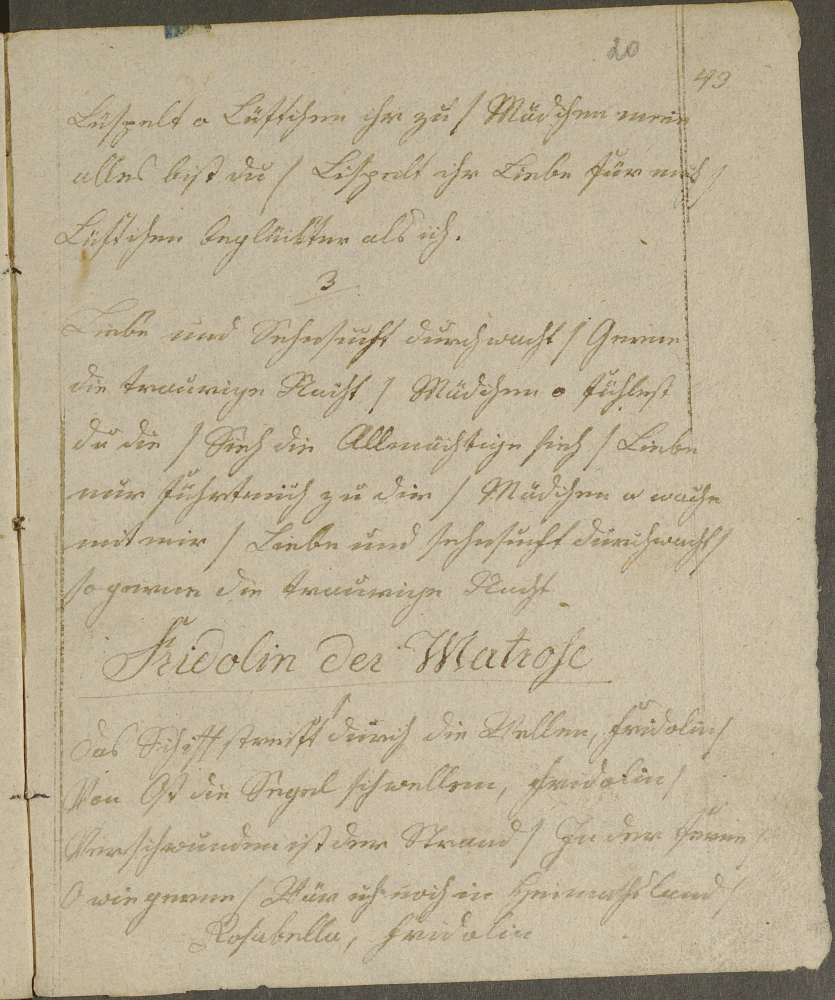 20
43
Lüspelt o Lüftchen ihr zu / Mädchen mein
alles bist du / Lispelt ihr Liebe für mich /
Lüftchen beglückter als ich.
3
Liebe und Sehnsucht durchwacht / Gerne
die traurige Nacht / Mädchen o fühlest
du die / Sieh die Allmächtige sieh / Liebe
nur führt mich zu dir / Mädchen o wache
mit mir / Liebe und sehnsucht durchwacht /
so gerne die traurige Nacht
Fridolin der Matrose
Das Schiff streift durch die Wellen, Fridolin /
Von Ost die Segel schwellen, Fridolin /
Verschwunden ist der Strand / In der Ferne /
O wie gerne / Wär ich noch in Heimathsland /
Rosabella, Fridolin